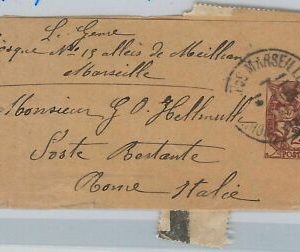 L. Geme
osque No 15 allés de Meillan
Marseille
Monsieur G O Hellmuth
Poste Restante
Rome Italie
MARSEILL
POSTE